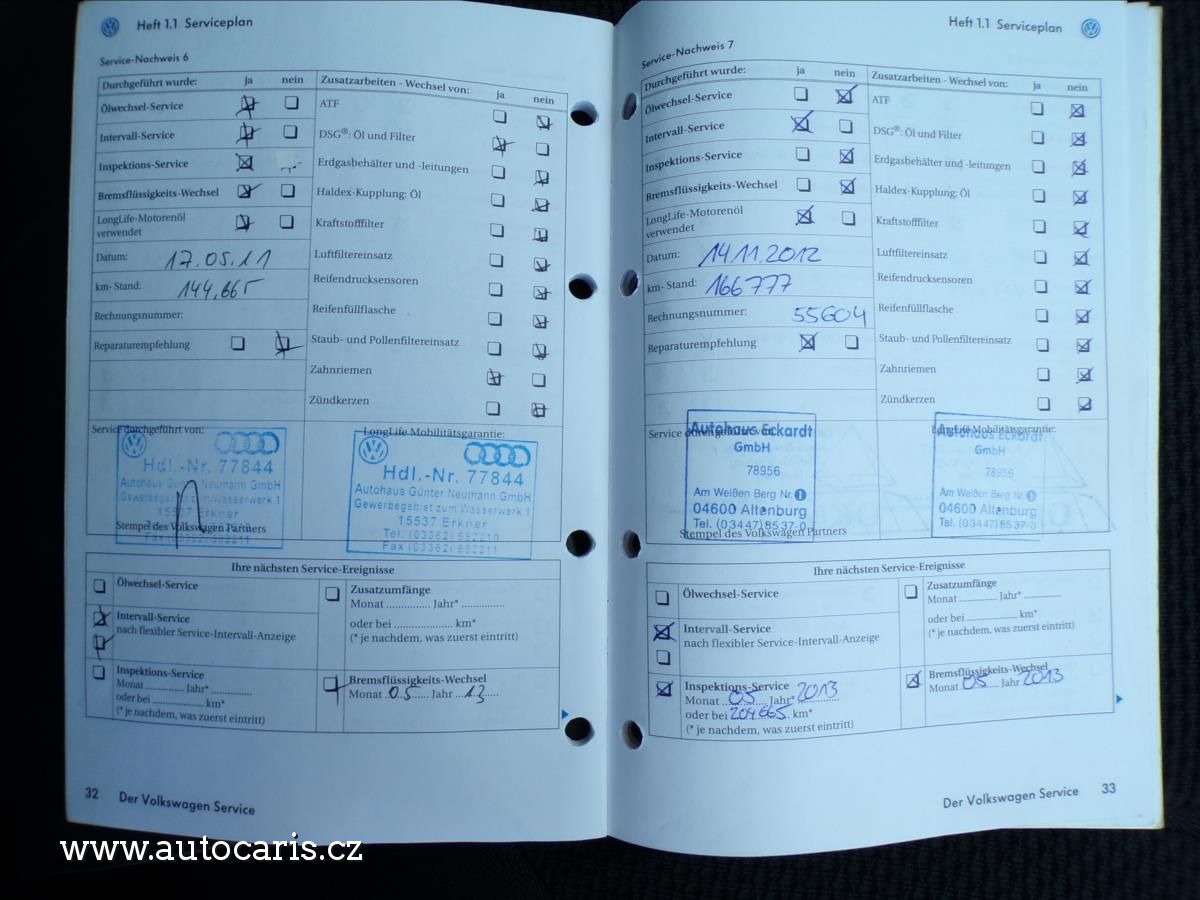 Heft 1.1 Serviceplan
Service-Nachweis 6
Durchgeführt wurde: ja nein
Ölwechsel-Service
Intervall-Service
Inspektions-Service
Bremsflüssigkeits-Wechsel
LongLife-Motorenöl
verwendet
Datum: 17.05.11
km- Stand: 144,665
Rechnungsnummer:
Reparaturempfehlung
Zusatzarbeiten - Wechsel von: ja nein
ATF
DSG®: Öl und Filter
Erdgasbehälter und -leitungen
Haldex-Kupplung: Öl
Kraftstofffilter
Luftfiltereinsatz
Reifendrucksensoren
Reifenfüllflasche
Staub- und Pollenfiltereinsatz
Zahnriemen
Zündkerzen
Service durchgeführt von:
Hdl.-Nr. 77844
Autohaus Günter Neumann GmbH
Gewerbegebiet zum Wasserwerk 1
15537 Erkner
Stempel des Volkswagen Partners
LongLife Mobilitätsgarantie:
Hdl.-Nr. 77844
Autohaus Günter Neumann GmbH
Gewerbegebiet zum Wasserwerk 1
15537 Erkner
Tel. (03362) 582210
Fax (03362) 582211
Ihre nächsten Service-Ereignisse
Ölwechsel-Service
Intervall-Service
nach flexibler Service-Intervall-Anzeige
Inspektions-Service
Monat ............ Jahr* ............
oder bei ............ km*
(* je nachdem, was zuerst eintritt)
Zusatzumfänge
Monat ............ Jahr* ............
oder bei ............ km*
(* je nachdem, was zuerst eintritt)
Bremsflüssigkeits-Wechsel
Monat 05 Jahr 13
32 Der Volkswagen Service
Heft 1.1 Serviceplan
Service-Nachweis 7
Durchgeführt wurde: ja nein
Ölwechsel-Service
Intervall-Service
Inspektions-Service
Bremsflüssigkeits-Wechsel
LongLife-Motorenöl
verwendet
Datum: 14.11.2012
km- Stand: 166777
Rechnungsnummer: 55604
Reparaturempfehlung
Zusatzarbeiten - Wechsel von: ja nein
ATF
DSG®: Öl und Filter
Erdgasbehälter und -leitungen
Haldex-Kupplung: Öl
Kraftstofffilter
Luftfiltereinsatz
Reifendrucksensoren
Reifenfüllflasche
Staub- und Pollenfiltereinsatz
Zahnriemen
Zündkerzen
Service durchgeführt von:
Autohaus Eckardt
GmbH
78956
Am Weißen Berg Nr. 1
04600 Altenburg
Tel. (03447) 85 37-0
Stempel des Volkswagen Partners
LongLife Mobilitätsgarantie:
Autohaus Eckardt
GmbH
78956
Am Weißen Berg Nr. 1
04600 Altenburg
Tel. (03447) 85 37-0
Ihre nächsten Service-Ereignisse
Ölwechsel-Service
Intervall-Service
nach flexibler Service-Intervall-Anzeige
Inspektions-Service
Monat 05 Jahr* 2013
oder bei 204.665 km*
(* je nachdem, was zuerst eintritt)
Zusatzumfänge
Monat ............ Jahr* ............
oder bei ............ km*
(* je nachdem, was zuerst eintritt)
Bremsflüssigkeits-Wechsel
Monat 05 Jahr 2013
Der Volkswagen Service 33
www.autocaris.cz